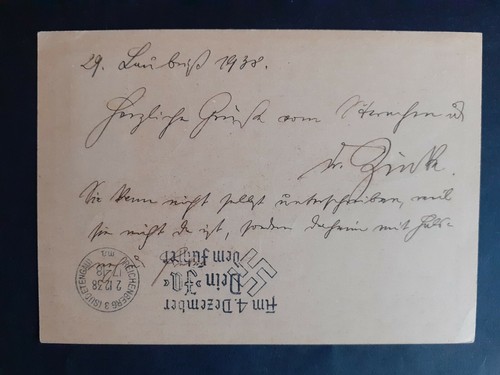 29. 1938.
Herzliche Grüße vom
Dr. Zinke.
Sie kann nicht selbst unterschreiben, weil
sie nicht da ist, sondern daheim mit Hals-
Am 4. Dezember
Dein »Ja«
dem Führer
REICHENBERG 3 (SUDETENGAU)
2.12.38